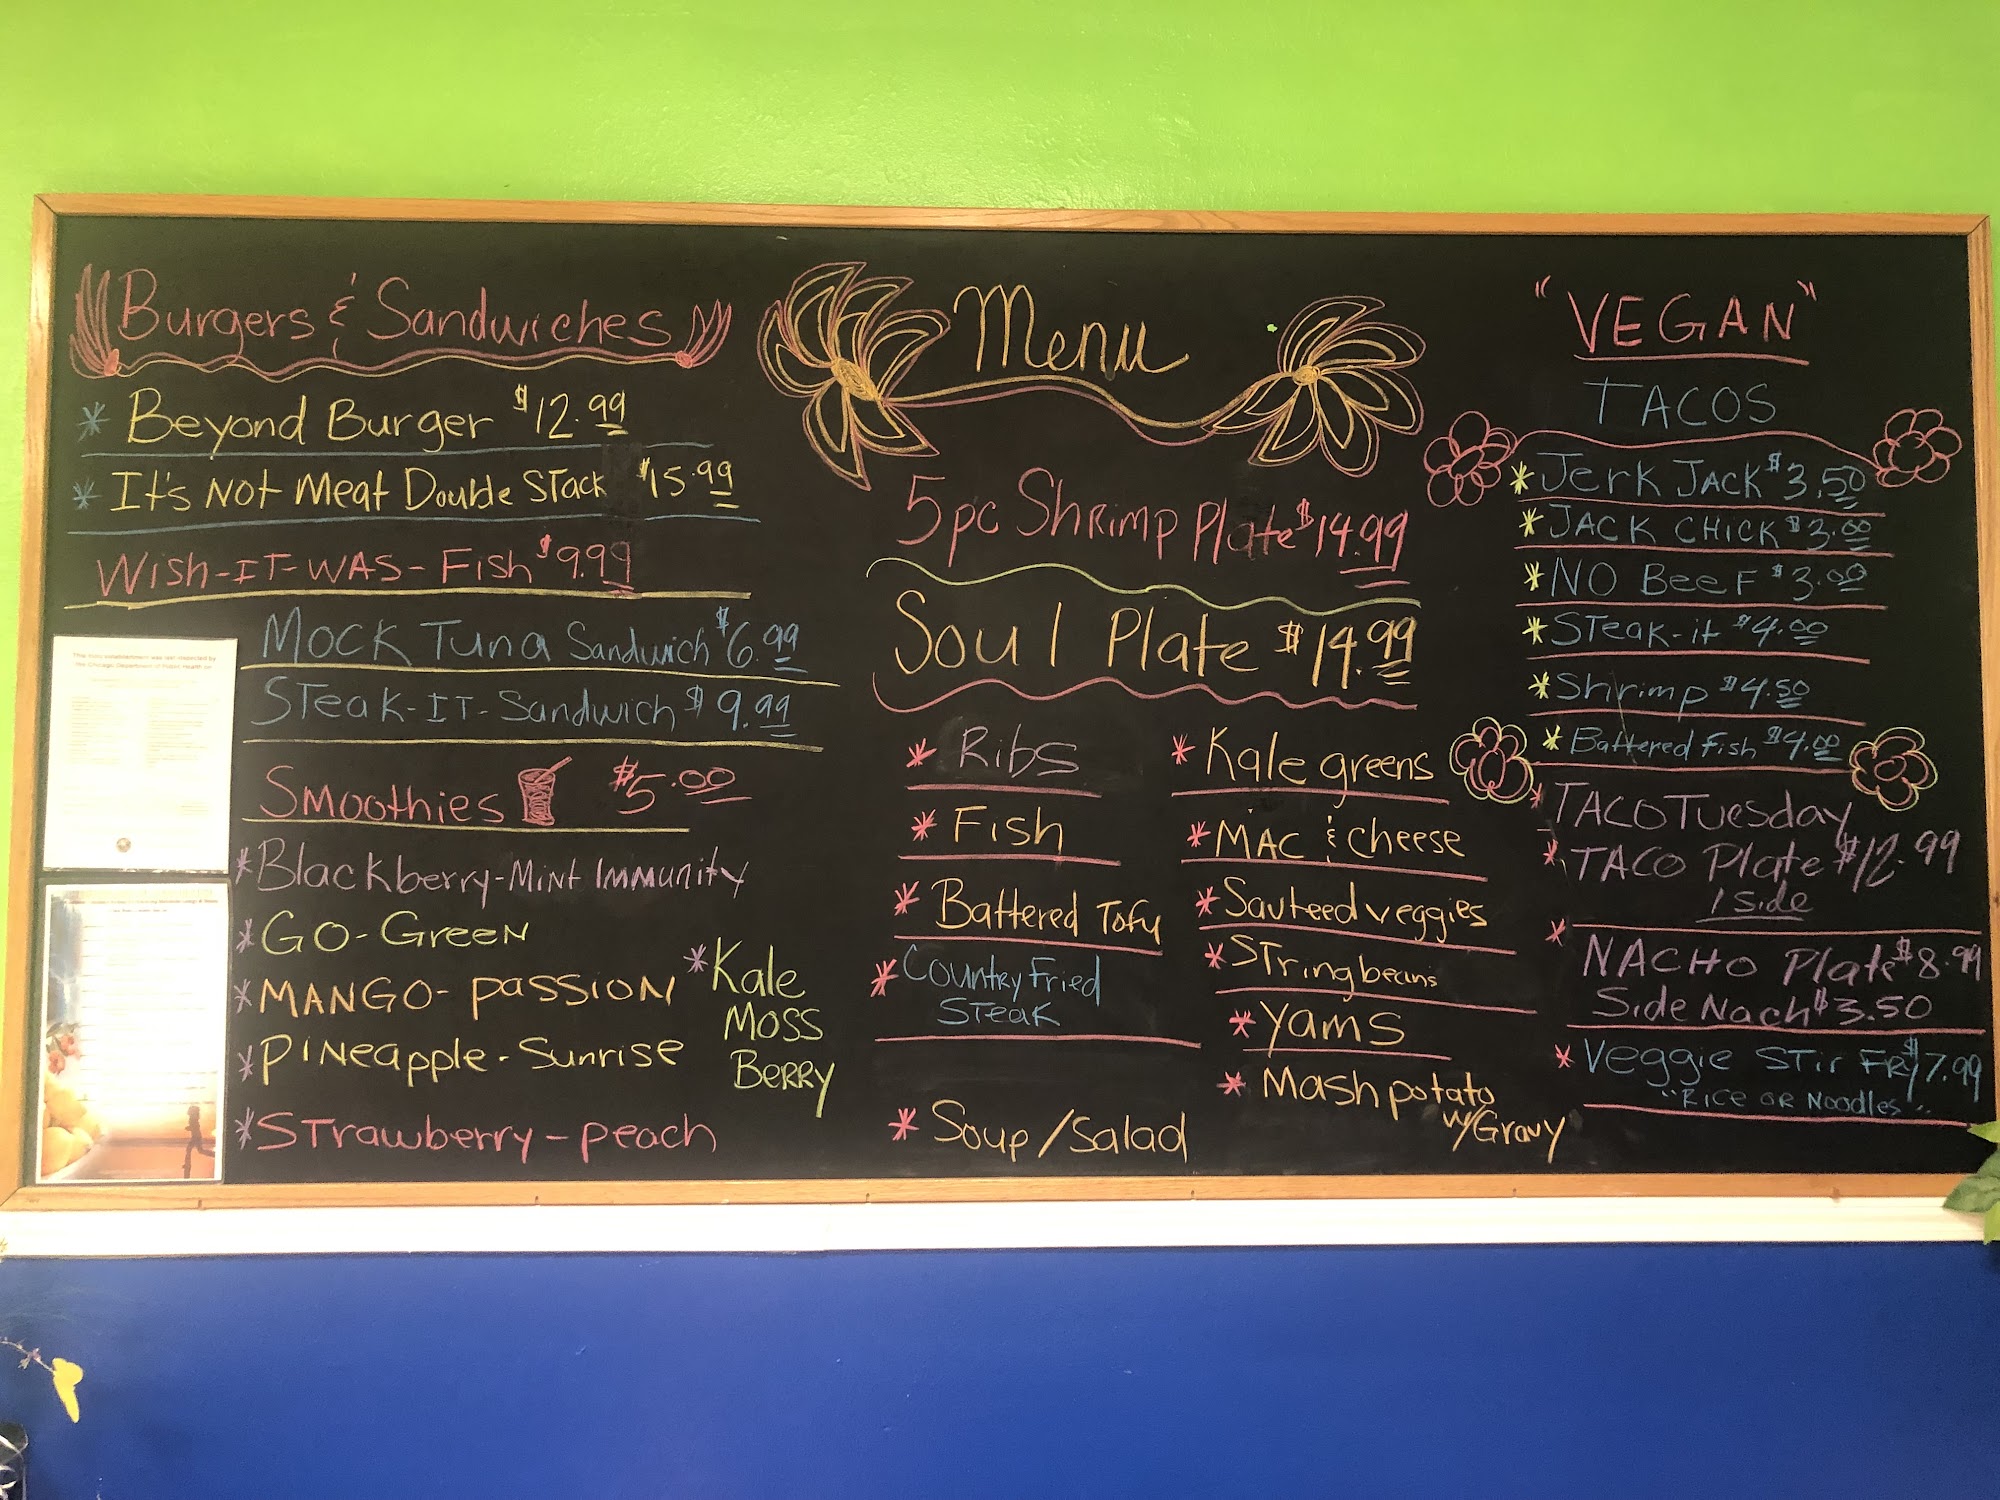 Burgers & Sandwiches
* Beyond Burger $12.99
* It's Not Meat Double Stack $15.99
Wish-It-Was-Fish $9.99
Mock Tuna Sandwich $6.99
Steak-It-Sandwich $9.99
Smoothies $5.00
* Blackberry-Mint Immunity
* Go-Green
* Mango-Passion
* Pineapple-Sunrise
* Strawberry-Peach
* Kale
Moss
Berry
Menu
5pc Shrimp Plate $14.99
Soul Plate $14.99
* Ribs
* Fish
* Battered Tofu
* Country Fried
Steak
* Soup/Salad
* Kale greens
* Mac & Cheese
* Sauteed veggies
* Stringbeans
* Yams
* Mash potato
w/Gravy
"VEGAN"
TACOS
* Jerk Jack $3.50
* Jack Chick $3.00
* No Beef $3.00
* Steak-it $4.00
* Shrimp $4.50
* Battered Fish $4.00
* Taco Tuesday
* Taco Plate $12.99
1 Side
* Nacho Plate $8.99
Side Nach $3.50
* Veggie Stir Fry $7.99
"Rice or Noodles"
This food establishment was last inspected by
the Chicago Department of Public Health on